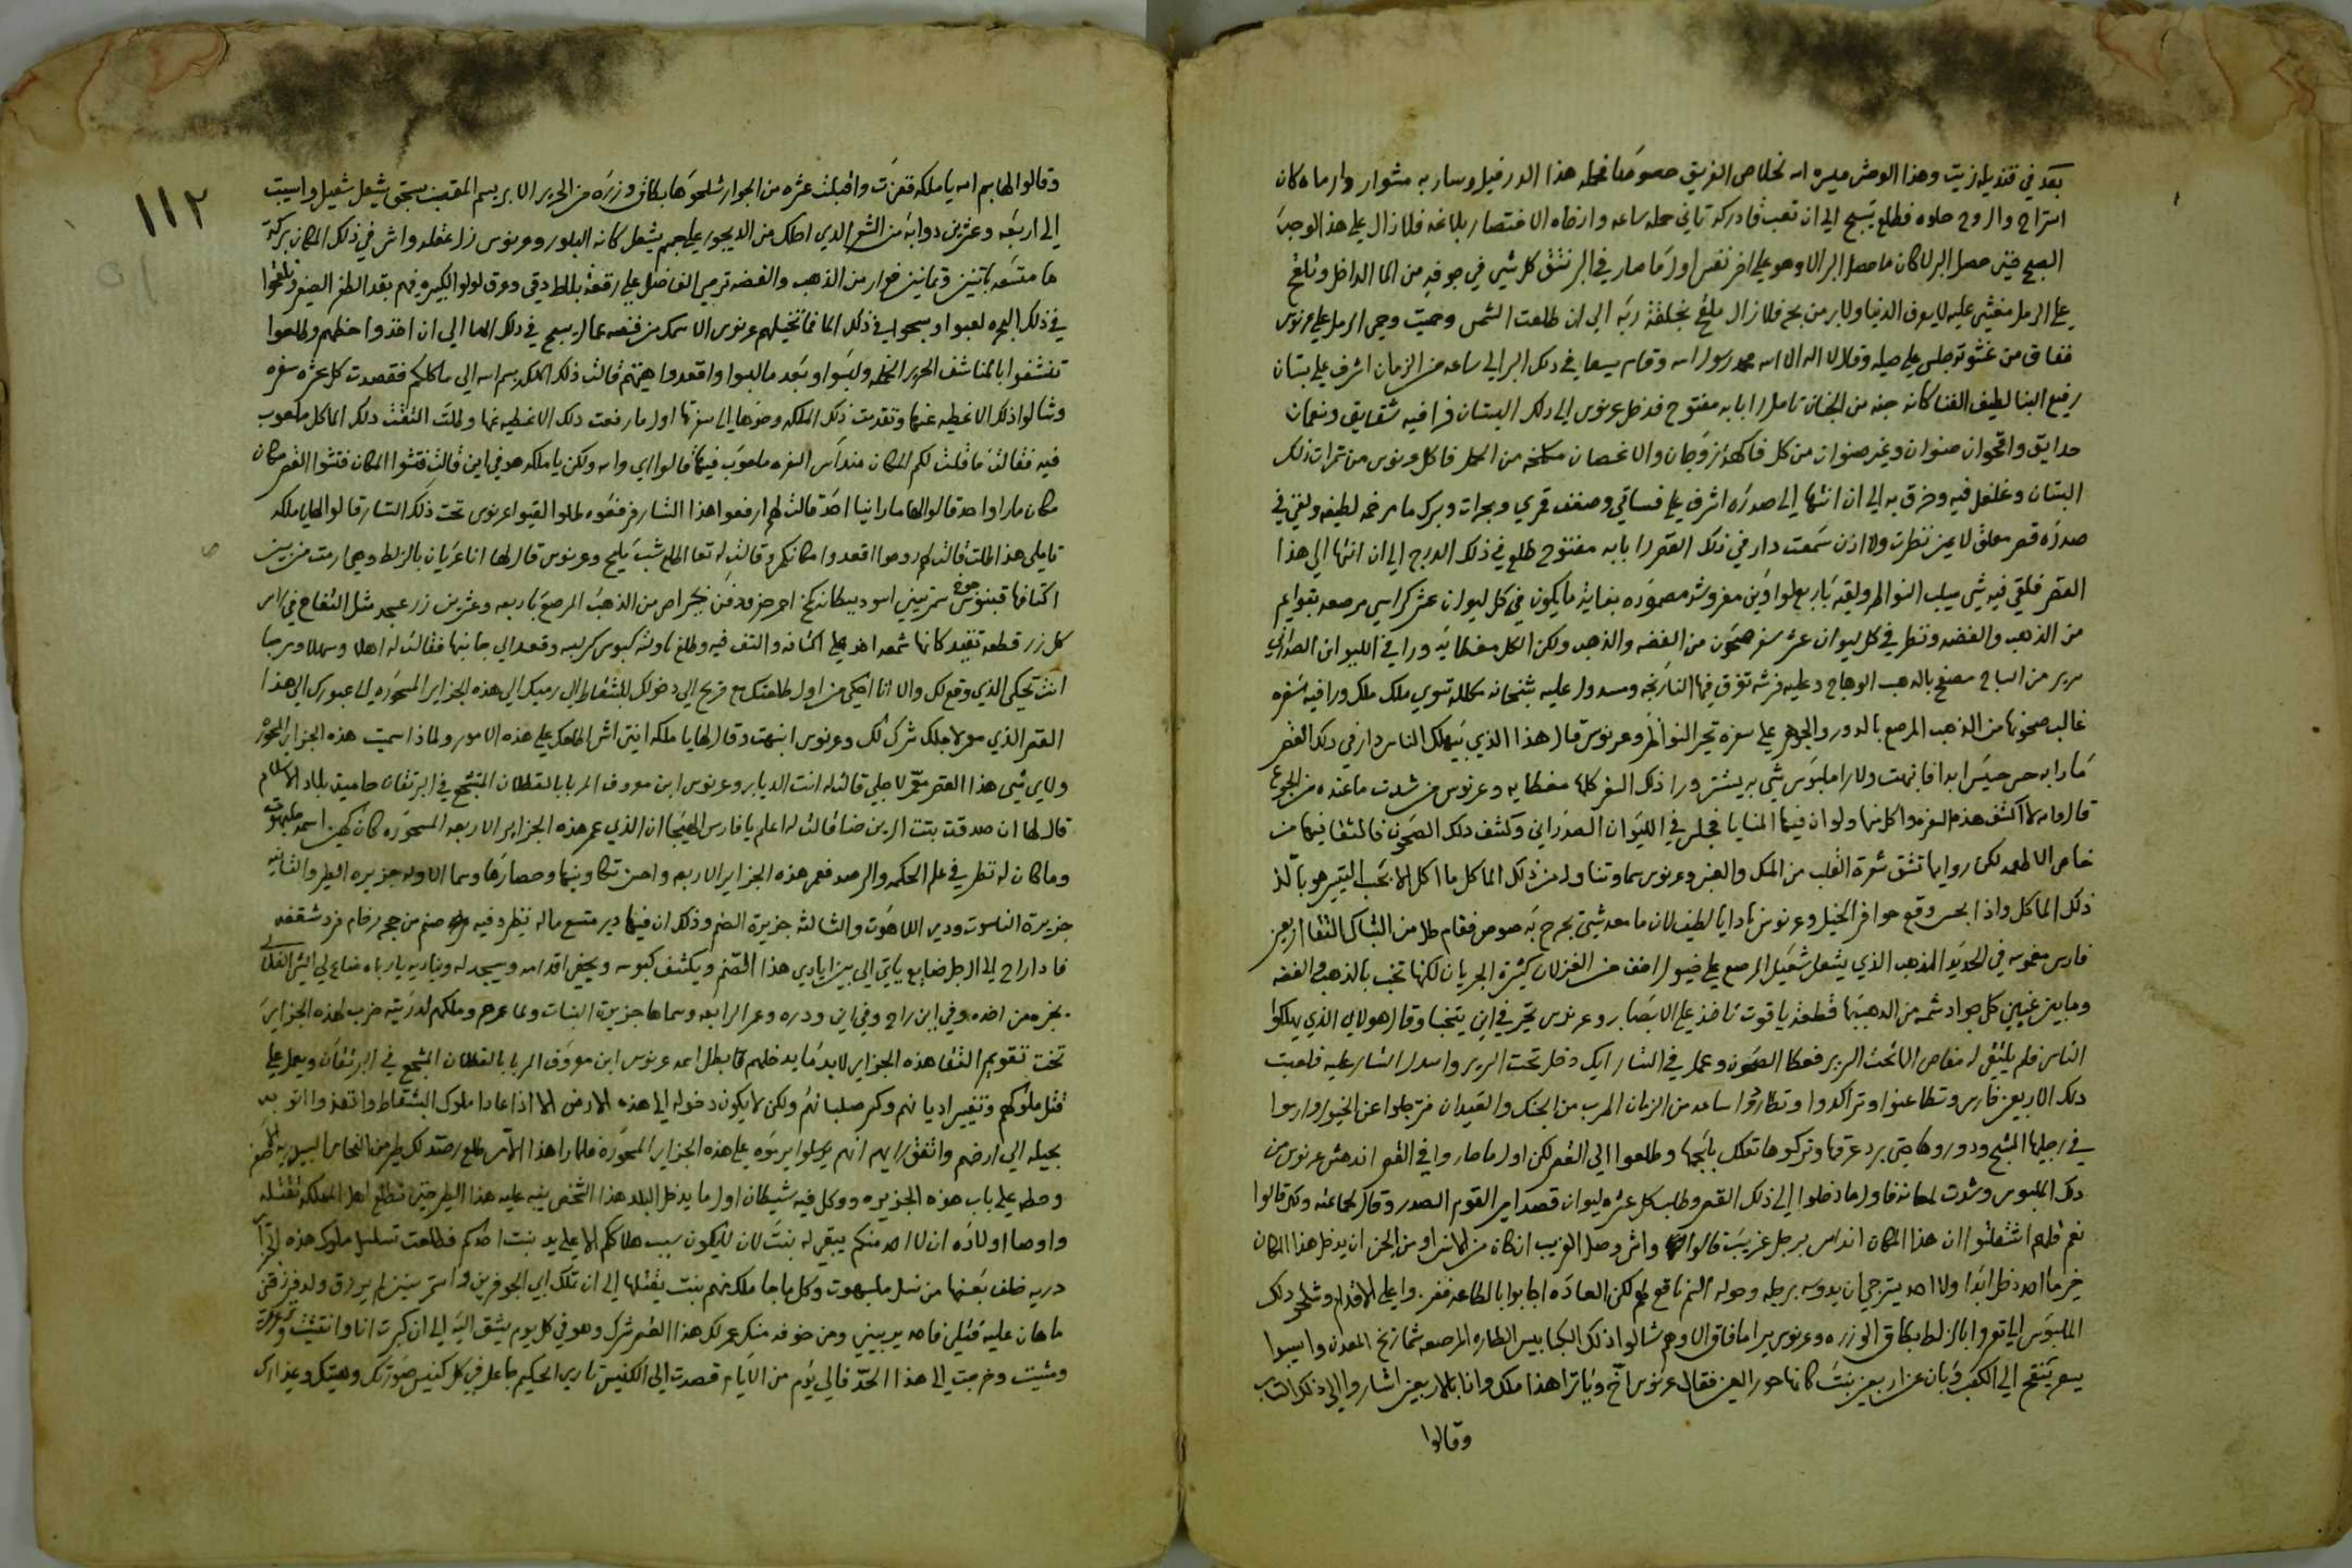 بعد في قنديل زيت وهذا الوحش ميسره الله لخلاص الغريق
استراح والروح حلوه فطلع يسبح الي ان تعب فادركه تاني حمله ساعه وارخاه الاختصار بلا ما زال علي هذا الوجب
الصبح حتي حصل البر وهو علي اخر نفس اول ما صار في البر نتق كل شي في جوفه من الما الداخل وتلقح
علي الرمل مغشي عليه لا يعرف الدنيا ولا زال ملقح الي ان طلعت الشمس وحميت وحمي الرمل علي عرنوس
ففاق من غشوته جلس علي حيله وقال لا اله الا الله محمد رسول الله وقام يسعا في ذلك البر الي ساعه من الزمان اشرف علي بستان
رفيع البنا لطيف الفنا كانه جنه من الجنان تامل را بابه مفتوح فدخل عرنوس الي ذلك البستان فرا فيه شقايق ونعمان
حدايق واقحوان صنوان وغير صنوان من كل فاكهه زوجان والاغصان من الحمل فاكل عرنوس من تمرات ذلك
البستان وغلغل فيه وخرق به الي ان انتها الي صدره اشرف علي فساقي وصفف قمري وبحرات وبرك ما مرخمه لطيفه ولقي في
صدره قصر معلق لا عين نظرت ولا اذن سمعت دار في ذلك القصر را بابه مفتوح طلع في ذلك الدرج الي ان انتها الي هذا
القصر فلقي فيه شي يسلب النواظر ولقيه باربع لواوين مفروشه مصموده بغاية ما يكون في كل ليوان عشر كراسي مرصعه بقوايم
من الذهب والفضه ونظر في كل ليوان عشر سفر صحون من الفضه والذهب ولكن الكل مغطايه ورا في الليوان الصدراني
سرير من الساج مصفح بالدهب الوهاج وعليه فرشه تغرق فيها ومسدول عليه مكلله تسوي ملك ملك ورا فيه سفره
غالب صحونها من الذهب المرصع بالدور والجوهر علي سفره تحير النواظر وعرنوس قال هذا الذي يهلك الناس دار في ذلك القصر
ما را به حس حسيس ابدا ولا را ملبوس شي به يستتر ورا ذلك السفر كلها مغطايه وعرنوس من شدت ما عنده من الجوع
قال والله لا اكشف هذه السفره واكل منها ولو ان فيها المنايا فجلس في الليوان الصدراني وكشف ذلك الصحون فالتقا فيها من
خاص الاطعمه لكن روايها تشق شعرة القلب من المسك والعنبر وعرنوس سما وتناول من ذلك الماكل ما اكل
ذلك الماكل واذا بحس وقع حوافر الخيل وعرنوس نادا يا لطيف لان ما معه شي يجرح به فقام طل من الشباك التقا اربعين
فارس مغموسه في الحديد المذهب الذي يشعل شعيل المرصع علي خيول اخف من الغزلان كثيرة الجريان لكنها تخب بالذهب والفضه
وما بين عينين كل جواد من الدهب بها قطعة ياقوت تاخذ علي الابصار وعرنوس تحير في اين يتخبا وقال هولاي الذي يهلكوا
الناس فلم يلتقي له مناص الا تحت السرير فغطا الصحون وعمل في الستار ايك دخل تحت السرير واسدل الستار عليه فلعبت
ذلك الاربعين فارس وتطاعنوا وتراكدوا وتطاردوا ساعه من الزمان المرب من الجنك والعيدان فترجلوا عن الخيول وارسوا
في رجيلها الشبح ودوروها حتي برد عرقها وتركوها تعلك بلجمها وطلعوا الي القصر لكن اول ما صاروا في القصر اندهش عرنوس من
ذلك الملبوس وشدت لمعانه فاول ما دخلوا الي ذلك القصر وطلب كل عشره ليوان قصد امير القوم الصدر وقال لجماعته ولكن قالوا
نعم قال هم اشتقلتوا ان هذا المكان انداس برجل غريب قالوا واش وصل الغريب ان كان من الانس او من الجن ان يدخل هذا المكان
خير ما احد دخل ابدا ولا احد يترجي ان يدوسه برجله وحوله الصنم ناقع لهم لكن العاده اجابوا بالطاعه فقفزوا علي الاقدام وشلحو ذلك
الملبوس الي ان تعروا بالزلط بكاق الوزره وعرنوس يرا ما فاق الا وهم شالوا ذلك الكبابيس الطاره المرصعه شماريخ المعدن واسبوا
شعر ينقح الي الكعب وبان عن اربعين بنت كانها حور العين فقال عرنوس اخ ويا ترا هذا ملك وانا بلا ربعين اشاروا الي ذلك الباب
وقالوا
١١٢
وقالوا لها بسم الله يا ملكه فقعرت واقبلت عشره من الجوار شلحوها بكاق وزره من الحرير الابريسم المقصب يشعل شعيل واسيبت
الي اربعه وعشرين دوابه من الشعر الذي احلك من الديجور علي جسم يشعل كانه البلور وعرنوس زل عقله واش في ذلك المكان بركة
ما متسعه باتنين وتمانين فوار من الذهب والفضه ترمي الما علي رقعة بلاط دقي وعرق لولو الكبيره فيهم بقد الطفل الصغير وتلقحوا
في ذلك البحره لعبوا وسبحوا في ذلك الما فاتخيلهم عرنوس الا سمك من فضه عمال يسبح في ذلك الما الي ان اخذوا حظهم وطلعوا
تنشفوا بالمناشف الحرير المخمله ولبسوا وبعد ما لبسوا واقعدوا هيتهم قالت ذلك الملكه بسم الله الي ماكلكم فقصدت كل عشره سفره
وشالوا ذلك الاغطيه عنها وتقدمت ذلك الملكه وحدها الي سفرتها اول ما رفعت ذلك الاغطيه عنها وطلت التقت ذلك الماكل ملعوب
فيه فقالت ما قلت لكم المكان منداس السفره ملعوب فيها قالوا اي والله ولكن يا ملكه هو في اين قالت فتشوا المكان فتشوا القصر مكان
مكان ما راوا احد قالوا لها ما راينا احد قالت لهم ارفعوا هذا الستار فرفعوه طلوا لقيوا عرنوس تحت ذلك الستار قالوا لها يا ملكه
تاملي هذا طلت قالت لهم روحوا اقعدوا مكانكم وقالت له تعا اطلع شب مليح وعرنوس قال لها انا عريان بالزلط وهي ارمت من بين
اكتافها قبنوس جوخ اسود احمر من الذهب المرصع باربعه وعشرين زر عسجد مثل التفاح في راس
كل زر قطعه تتقيد كانها شمعه اخذ علي اكتافه والتف فيه وطلع ناولته كبوس كرسيه وقعد الي جانبها فقالت له اهلا وسهلا ومرحبا
انت تحكي الذي وقع لك والا انا احكي من اول طلعتك مع فريح الي دخولك للبشقاط الي رميك الي هذه الجزاير المسحوره الي عبورك الي هذا
القصر الذي هو لاجلك شرك لك وعرنوس انبهت وقال لها يا ملكه انتي اش اطلعك علي هذه الامور ولماذا سميت هذه الجزاير المسحوره
ولاي شي هذا القصر معمر لاجلي قالت له انت الديابرو عرنوس ابن معروف المربا بالقطلان المتشجع في البرتقان حاميت بلاد الاسلام
قال لها ان صدقت بنت الزين ضنا قالت له اعلم يا فارس الهيجا ان الذي عمر هذه الجزاير الاربعه المسحوره كان كهين اسمه ملبهوت
وما كان له نظير في علم الحكمه والرصد فعمر هذه الجزاير الاربعه واحسن تكاوينها وحصارها وسما الاوله جزيرة الطير والثانيه
جزيرة الناسوت ودير اللاهوت والثالثه جزيرة الصنم وذلك ان فيها دير متسع ماله نظير وفيه صنم من حجر رخام فرد شقفه
فاذا راح الي الرجل ضايع ياتي الي بين ايادي هذا الصنم ويكشف كبوسه ويحفي اقدامه ويسجد له ويناديه يا رباه ضاع لي الشي الفلاني
يخبره من اخذه وفي اين راح وفي اين وداه وعمر الرابعه وسماها جزيرة البنات ولما عمرهم وملكهم لدريته ضرب لهذه الجزاير
تخت تقويم التقا هذه الجزاير لا بد ما يدخلهم بطل اسمه عرنوس ابن معروف المربا بالقطلان المشجع في البرتقان ويعمل علي
قتل ملوكهم وتغيير اديانهم وكسر صلبانهم ولكن لا يكون دخوله الي هذه الارض الا اذا عادا ملوك البشقاط واتفذوا
بحيله الي ارضهم واتفق رايهم انهم يرسلوا يرموه علي هذه الجزاير المسحوره فلما را هذا الامر طلع رصد لك طير من النحاس
وحطه علي باب هذه الجزيره ووكل فيه شيطان اول ما يدخل البلد هذا الشخص ينبه عليه هذا الطير حتي تطلع اهل المملكه تقتله
واوصا اولاده ان لا احد منكم يبقي له بنت لان لا يكون سبب هلاككم الا علي يد بنت احدكم فطلعت تسلسل ملوك هذه الجزاير
دريه خلف بعضها من نسل ملبهوت وكل ما جا ملك منهم بنت يقتلها الي ان تملك ابي الجوفرين واستمر سنين لم يرزق ولد فرزقني
ما هان عليه قتلي فاهد يربيني ومن خوفه منك عمر لك هذا القصر شرك وهو في كل يوم يشق اليه الي ان كبرت انا وانتشيت وتحركت
ومشيت وخرجت الي هذا الحد فالي يوم من الايام قصدت الي الكنيس تاري الحكيم جاعل في كل كنيس صورتك وهيتك وعذارك